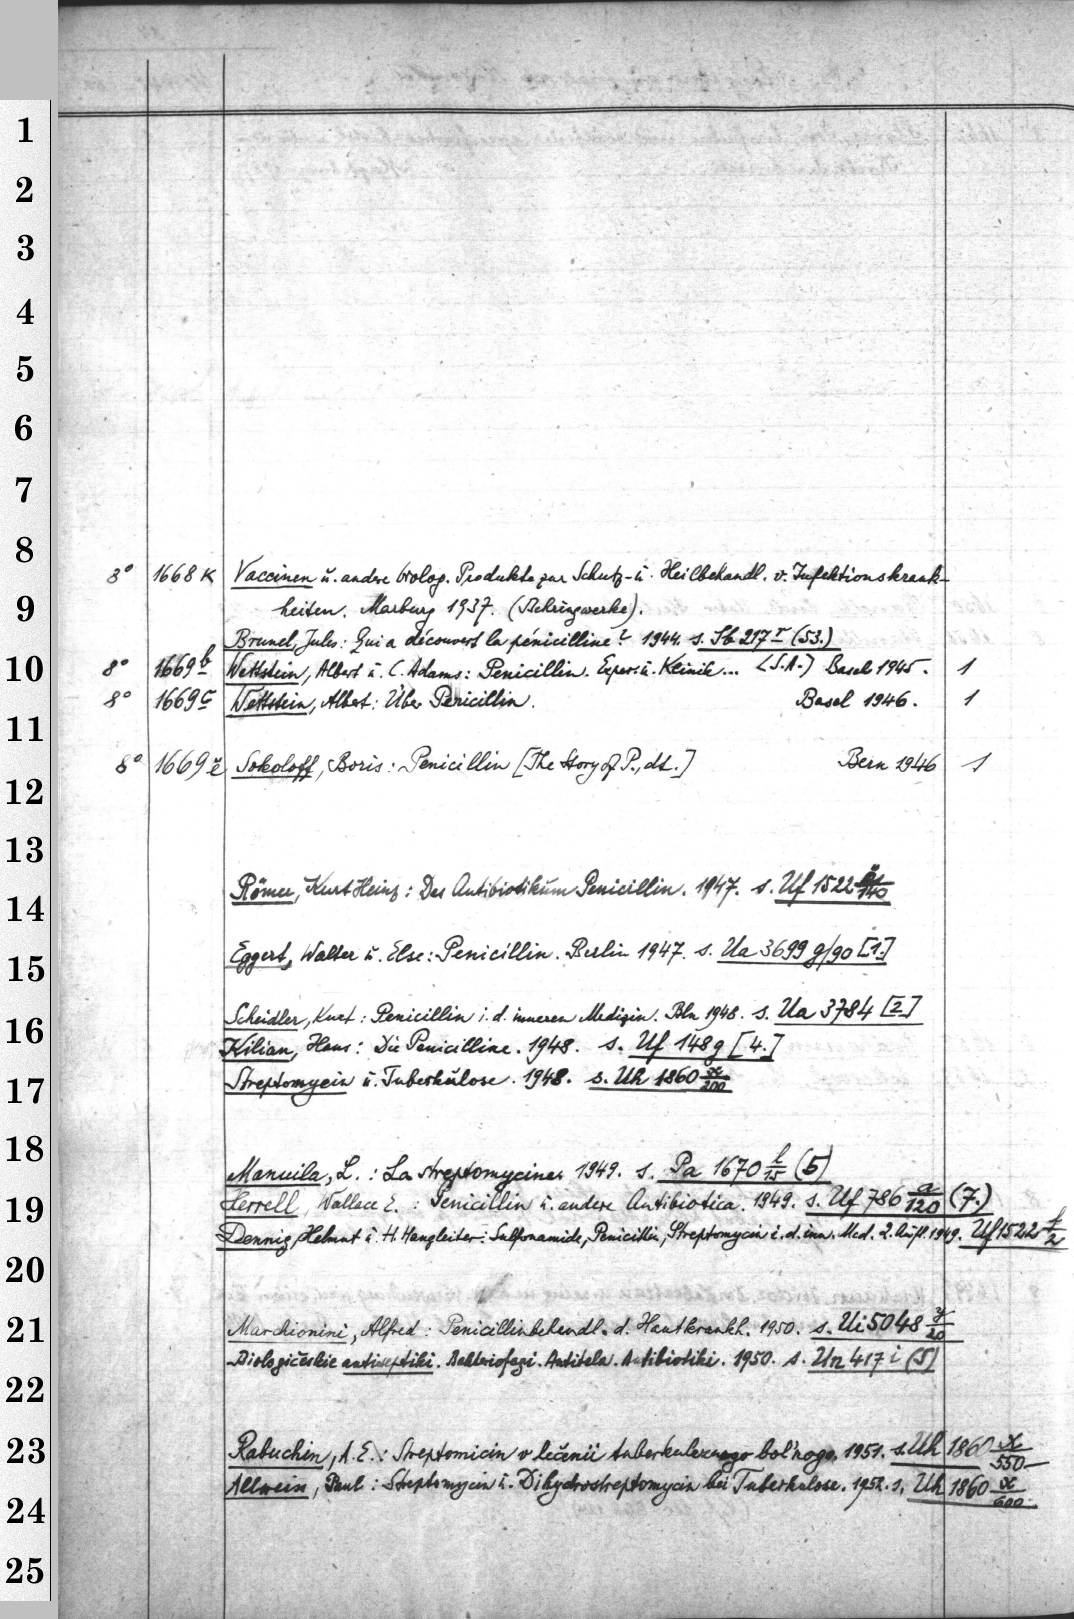 1
2
3
4
5
6
7
8
8° 1668 K Vaccinen u. andere biolog. Produkte zur Schutz- u. Heilbehandl. v. Infektionskrank-
9
heiten. Marburg 1937. (Behringwerke).
Brunel, Jules: Qui a découvert la pénicilline? 1944. s. Sb 217 r (53.)
10
8° 1669 b Wettstein, Albert u. C. Adams: Penicillin. Exper. u. Klinik... (S.A.) Basel 1945. 1
8° 1669 c Wettstein, Albert: Über Penicillin. Basel 1946. 1
11
8° 1669 e Sokoloff, Boris: Penicillin [The Story of P., dt.] Bern 1946 1
12
13
Römer, Kurt Heinz: Das Antibiotikum Penicillin. 1947. s. Uf 1522 /140
14
Eggert, Walter u. Else: Penicillin. Berlin 1947. s. Ua 3699 g/90 [1.]
15
Scheidler, Kurt: Penicillin i. d. inneren Medizin. Bln 1948. s. Ua 3784 [2]
16
Kilian, Hans: Die Penicilline. 1948. s. Uf 148 g [4.]
Streptomycin u. Tuberkulose. 1948. s. Uh 1860 x/200
17
18
Manuila, L.: La streptomycine. 1949. s. Pa 1670 h/15 (5)
19
Herrell, Wallace E.: Penicillin u. andere Antibiotica. 1949. s. Uf 786 a/120 (7.)
Dennig, Helmut u. H. Hangleiter: Sulfonamide, Penicillin, Streptomycin i. d. inn. Med. 2. Aufl. 1949. Uf 1522 f/2
20
21
Marchionini, Alfred: Penicillinbehandl. d. Hautkrankh. 1950. s. Ui 5048 y/20
Biologičeskie antiseptiki. Bakteriofagi. Antitela. Antibiotiki. 1950. s. Un 417 i (5)
22
23
Rabuchin, A. E.: Streptomicin v lečenii tuberkuleznogo bol'nogo. 1951. s. Uh 1860 x/550
Allwein, Paul: Streptomycin u. Dihydrostreptomycin bei Tuberkulose. 1952. s. Uh 1860 x/600
24
25